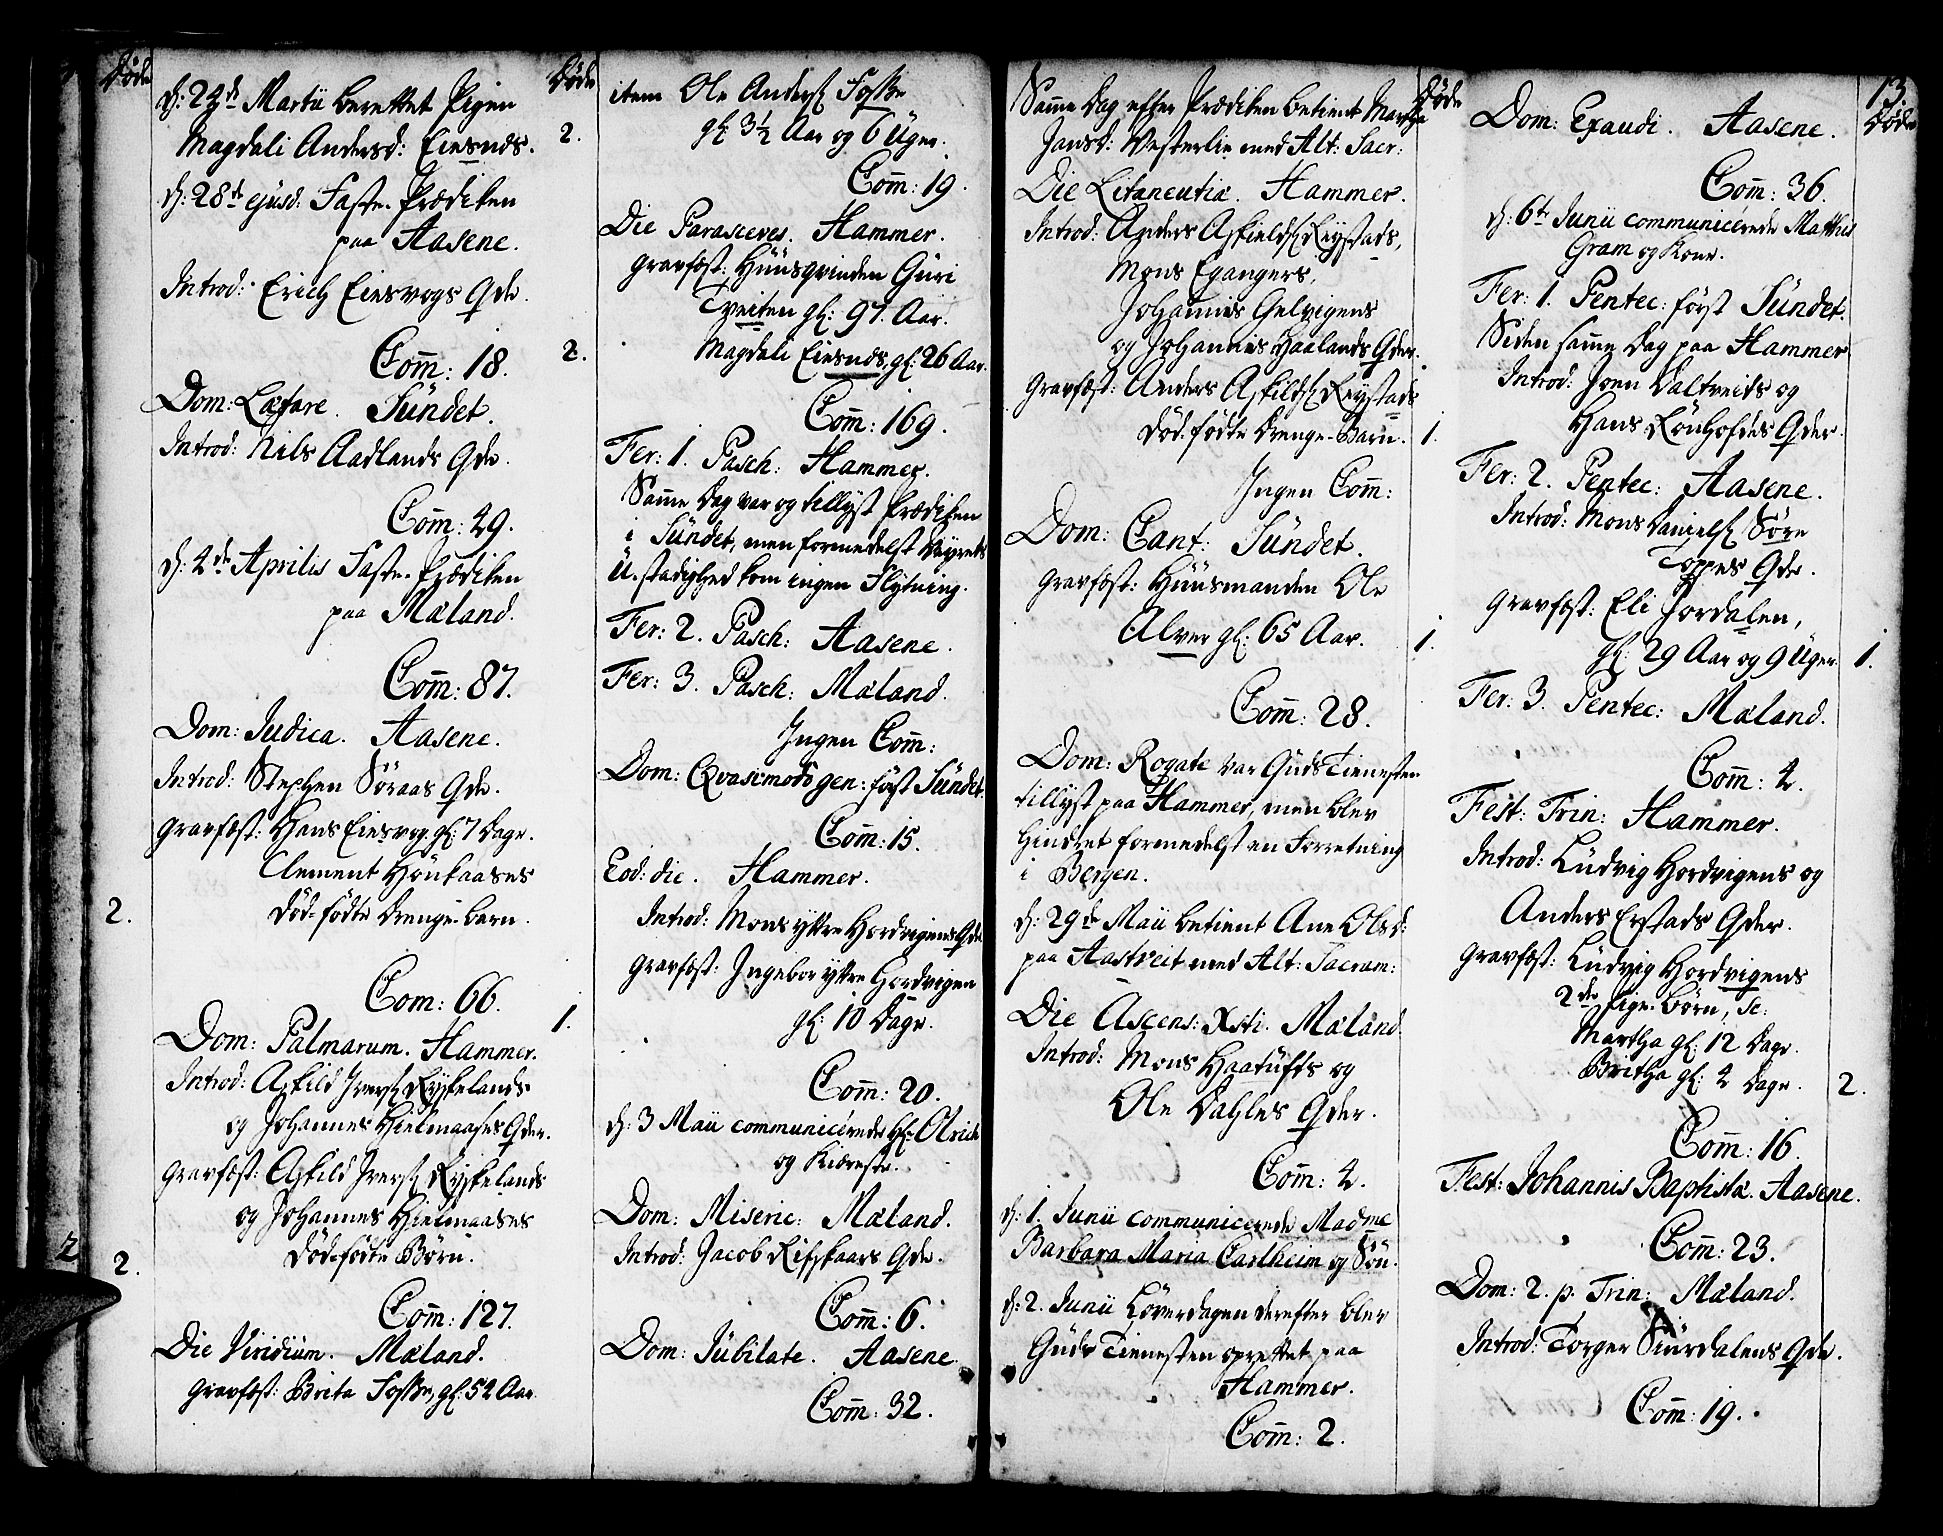 Døde
d: 24de Martii berettet Pigen
Magdali Andersd: Einsnds.
d: 28de ejusd: Faste-Prædiken
paa Aasene.
Introd: Erich Einsvogs Qde.
Com̄: 18.
Dom: Lætare. Sündet.
Introd: Nils Aadlands Qde.
Com̄: 29.
d: 4de Aprilis Faste-Prædiken
paa Mæland.
Com̄: 87.
Dom: Judica. Aasene.
Introd: Stephen Søraas Qde.
Gravfæst: Hans Einsvog gl: 7 Dage.
Clement Hønkaases
død-fødte Drenge-barn.
2.
Com: 66.
Dom: Palmarum. Hammer.
Introd: Askild Iversß Ryskelands
og Johannes Hielmaases Qder.
Gravfæst: Askild Iversß Ryskelands
og Johannes Hielmaases
død-fødte Børn.
2.
Com̄: 127.
Die Viridium. Mæland.
Gravfæst: Brita Fosse, gl: 52 Aar
Døde
item Ole Andersß Fosse
gl: 3½ Aar og 6 Uger.
2.
Com̄: 19.
Die Parasceves. Hammer.
Gravfæst: Hüüsqvinden Güri
Tveiten gl: 97. Aar.
Magdali Einsnds, gl: 26 Aar.
2.
Com̄: 169.
Fer: 1. Pasch: Hammer.
Samme Dag var og tillyst Prædiken
i Sündet, men formedelst Veyrets
U-stadighed kom ingen Flytning.
Fer: 2. Pasch: Aasene.
Fer: 3. Pasch: Mæland.
Ingen Com̄:
Dom: Qvasimodogen: først Sündet.
Com̄: 15.
Eod: die. Hammer.
Introd: Mons yttre Hordvigens Qde
Gravfæst: Ingebor yttre Hordvigen
gl: 10 Dage.
1.
Com̄: 20.
d: 3 Maii communicerede Hr: Olrich
og Kiæreste.
Dom: Miseric: Mæland.
Introd: Jacob Risskaars Qde.
Com̄: 6.
Dom: Jübilate. Aasene.
Com̄: 32.
Døde
Samme Dag efter Prædiken betient Martha
Jansd: Vesterlie med Alt: Sacr:
Die Litaneutiæ. Hammer.
Introd: Anders Askieldsß Reystads,
Mons Egangers,
Johannes Gelvigens
og Johannes Haalands Qder.
Gravfæst: Anders Askildsß Reystads
død-fødte Drenge-Barn. 1.
Ingen Com̄:
Dom: Cant: Sündet.
Gravfæst: Hüüsmanden Ole
Alver gl: 65 Aar. 1.
Com̄: 28.
Dom: Rogate var Guds Tienesten
tillyst paa Hammer, men blev
hindret formedelst en Forretning
i Bergen.
d: 29de Maii betient Ane Olsd:
paa Aastveit med Alt: Sacram:
Die Ascens: Xsti. Mæland.
Introd: Mons Haatüfts og
Ole Dahles Qder.
Com̄: 4.
d: 1. Junii communicerede Madme
Barbara Maria Carlheim og Søn.
d: 2. Junii Løverdagen derefter blev
Guds Tienesten oprettet paa
Hammer.
Com̄: 2.
13.
Døde
Dom: Exaudi. Aasene.
Com̄: 36.
d: 6te Junii communicerede Matthis
Gram og Kone.
Fer: 1. Pentec: først Sündet.
Siden samme Dag paa Hammer
Introd: Joen Daltveits og
Hans Rønhofdes Qder.
Fer: 2. Pentec: Aasene.
Introd: Mons Danielsß Søre
Toppes Qde.
Gravfæst: Eli Jordalen,
gl: 29 Aar og 9 Uger. 1.
Fer: 3. Pentec: Mæland.
Com̄: 4.
Fest: Trin: Hammer.
Introd: Lüdvig Hordvigens og
Anders Erstads Qder.
Gravfæst: Lüdvig Hordvigens
2de Pige-Børn, sc:
Martha gl: 12 Dage.
Britha gl: 4 Dage. 2.
Com̄: 16.
Fest: Johannis Baptistæ. Aasene.
Com̄: 23.
Dom: 2. p. Trin: Mæland.
Introd: Torger Siurdalens Qde.
Com̄: 19.